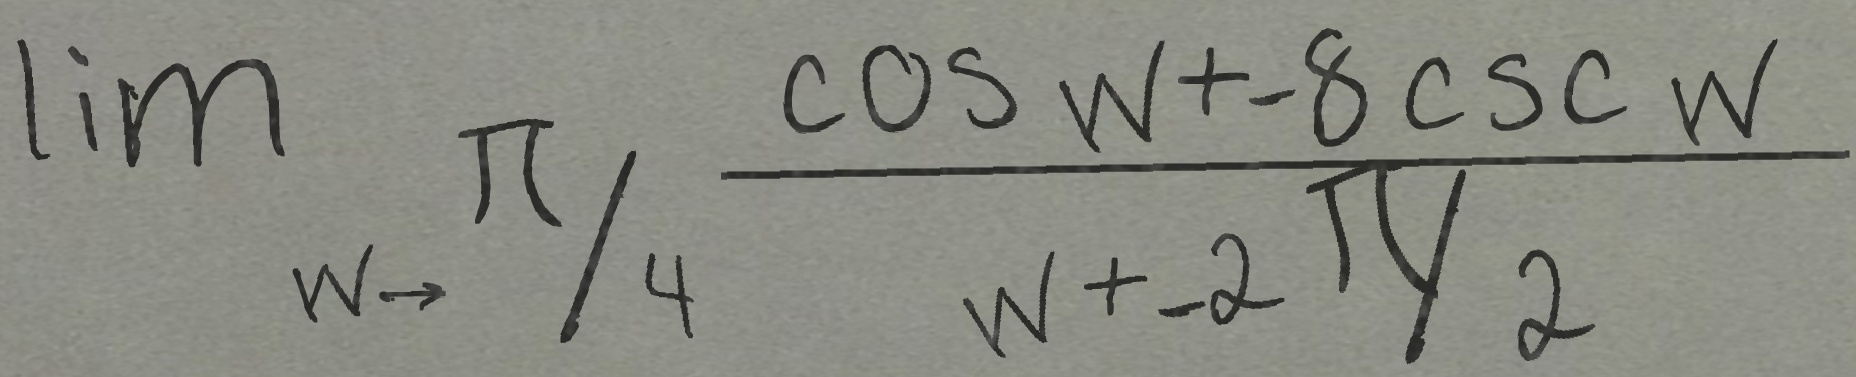 lim w→ π/4 cos w + -8 csc w / w + -2 π/2